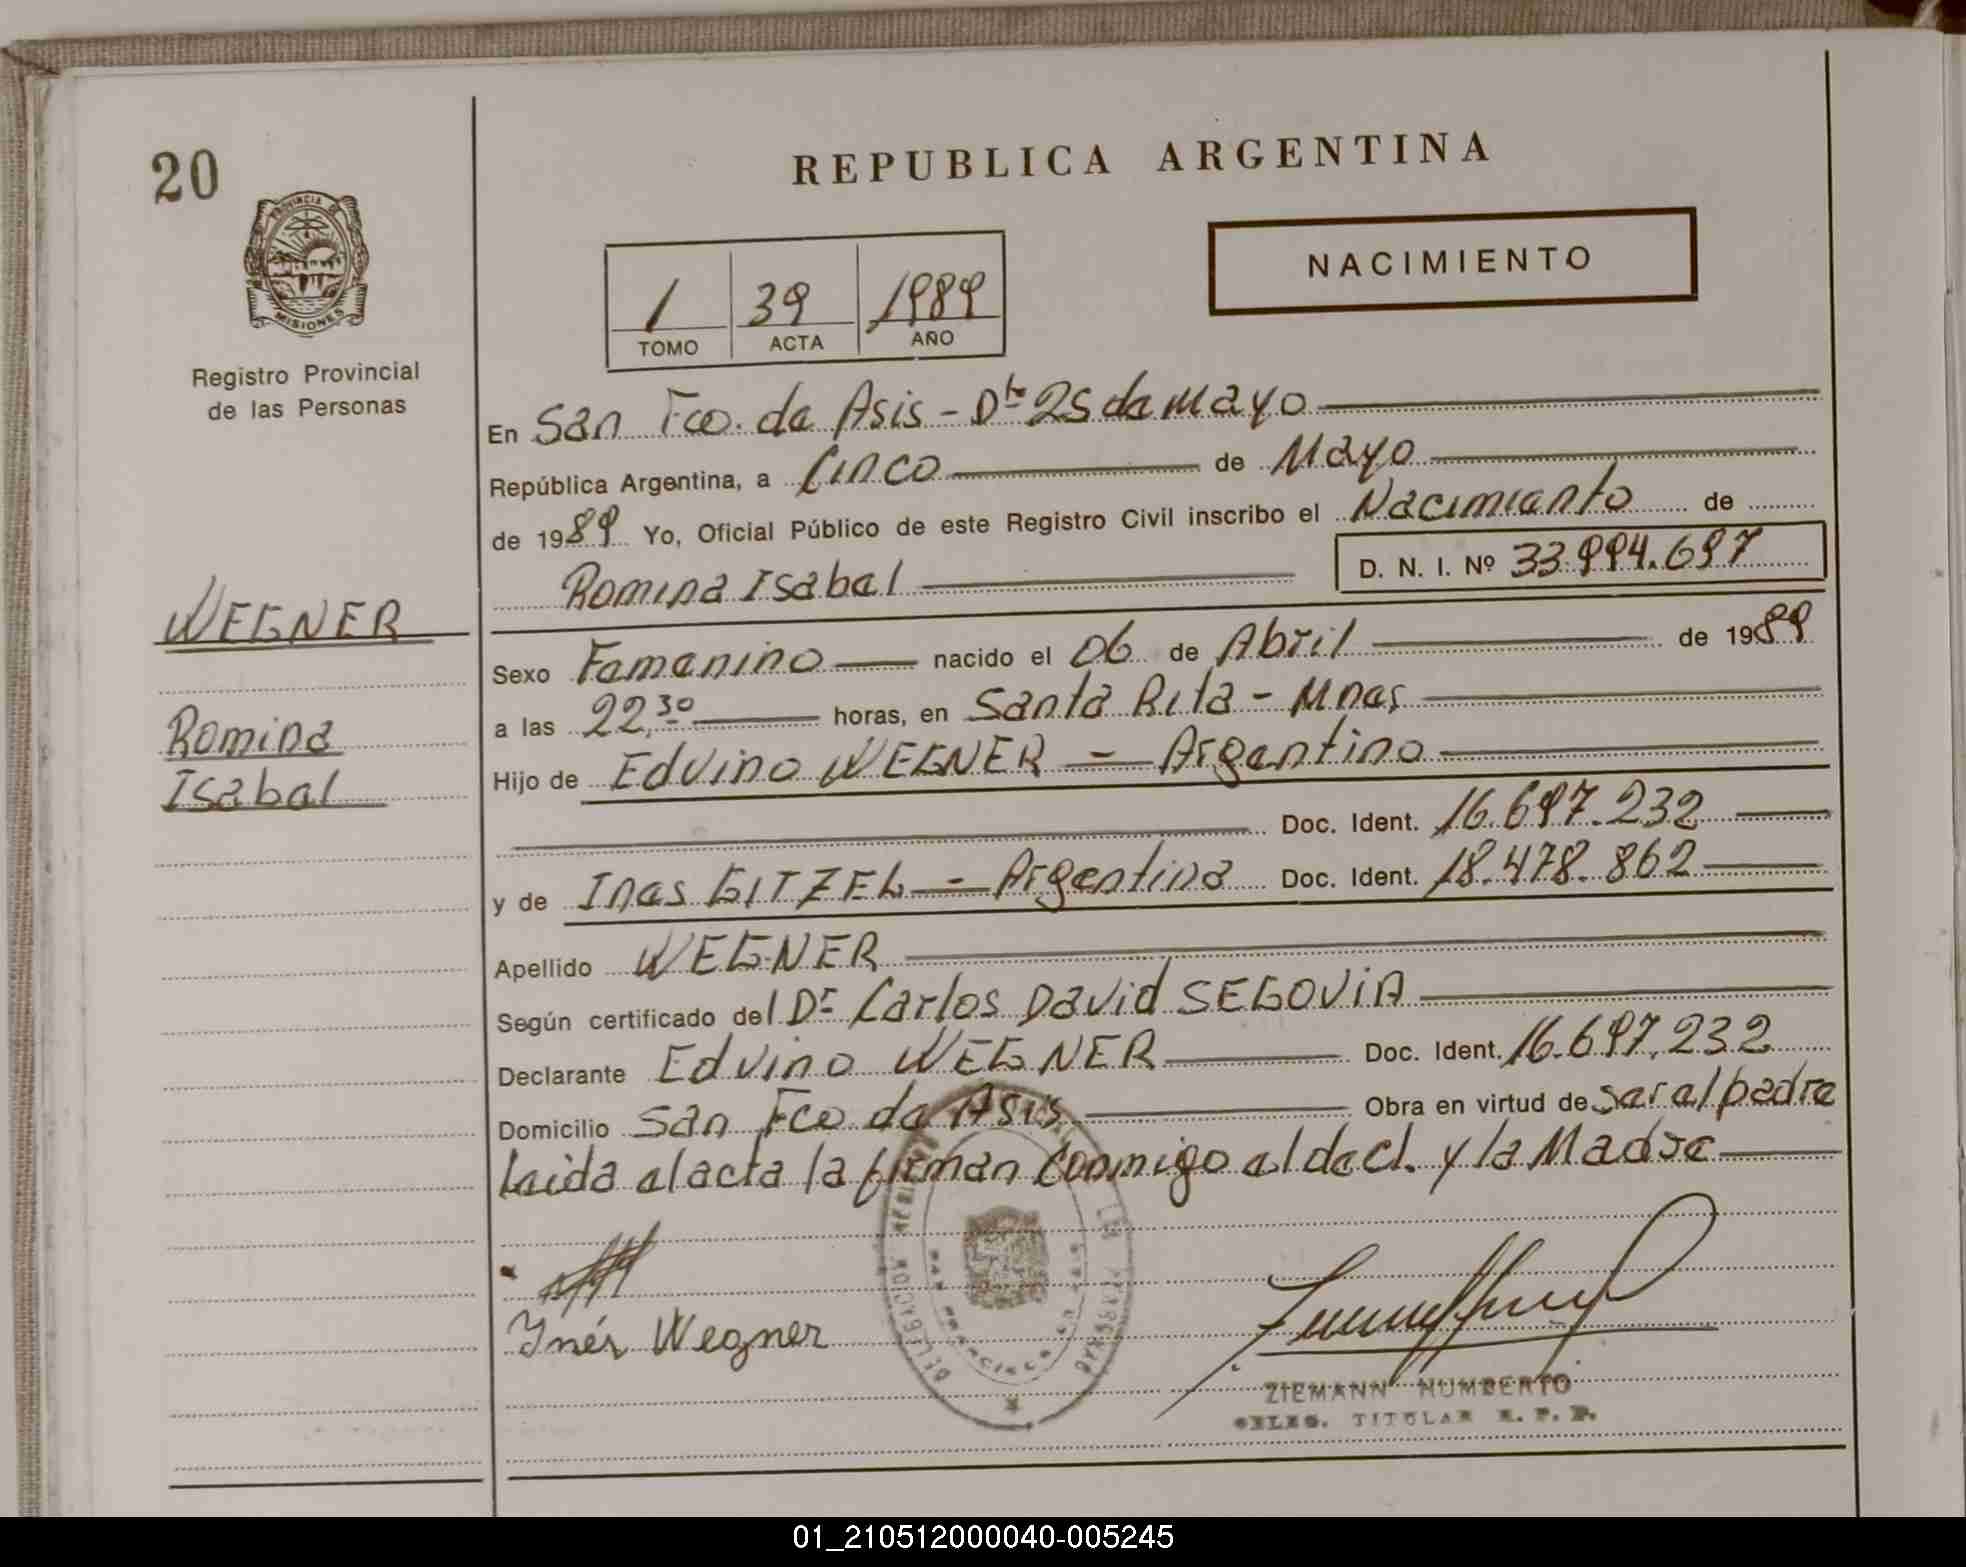 20
REPUBLICA ARGENTINA
PROVINCIA DE
MISIONES
Registro Provincial
de las Personas
1 39 1989
TOMO ACTA AÑO
NACIMIENTO
En San Fco. de Asis - Dto 25 de Mayo
República Argentina, a Cinco de Mayo
de 1989 Yo, Oficial Público de este Registro Civil inscribo el Nacimiento de
Romina Isabel D. N. I. Nº 33.994.697
WEGNER
Romina
Isabel
Sexo Femenino nacido el 06 de Abril de 1989
a las 22,30 horas, en Santa Rita - Mnes
Hijo de Edvino WEGNER - Argentino
Doc. Ident. 16.697.232
y de Ines GITZEL - Argentina Doc. Ident. 18.478.862
Apellido WEGNER
Según certificado del Dr Carlos David SEGOVIA
Declarante Edvino WEGNER Doc. Ident. 16.697.232
Domicilio San Fco de Asis Obra en virtud de ser el padre
Leida el acta la firman conmigo el decl. y la Madre
Inés Wegner
ZIEMANN HUMBERTO
DELEG. TITULAR R. P. P.
01_210512000040-005245